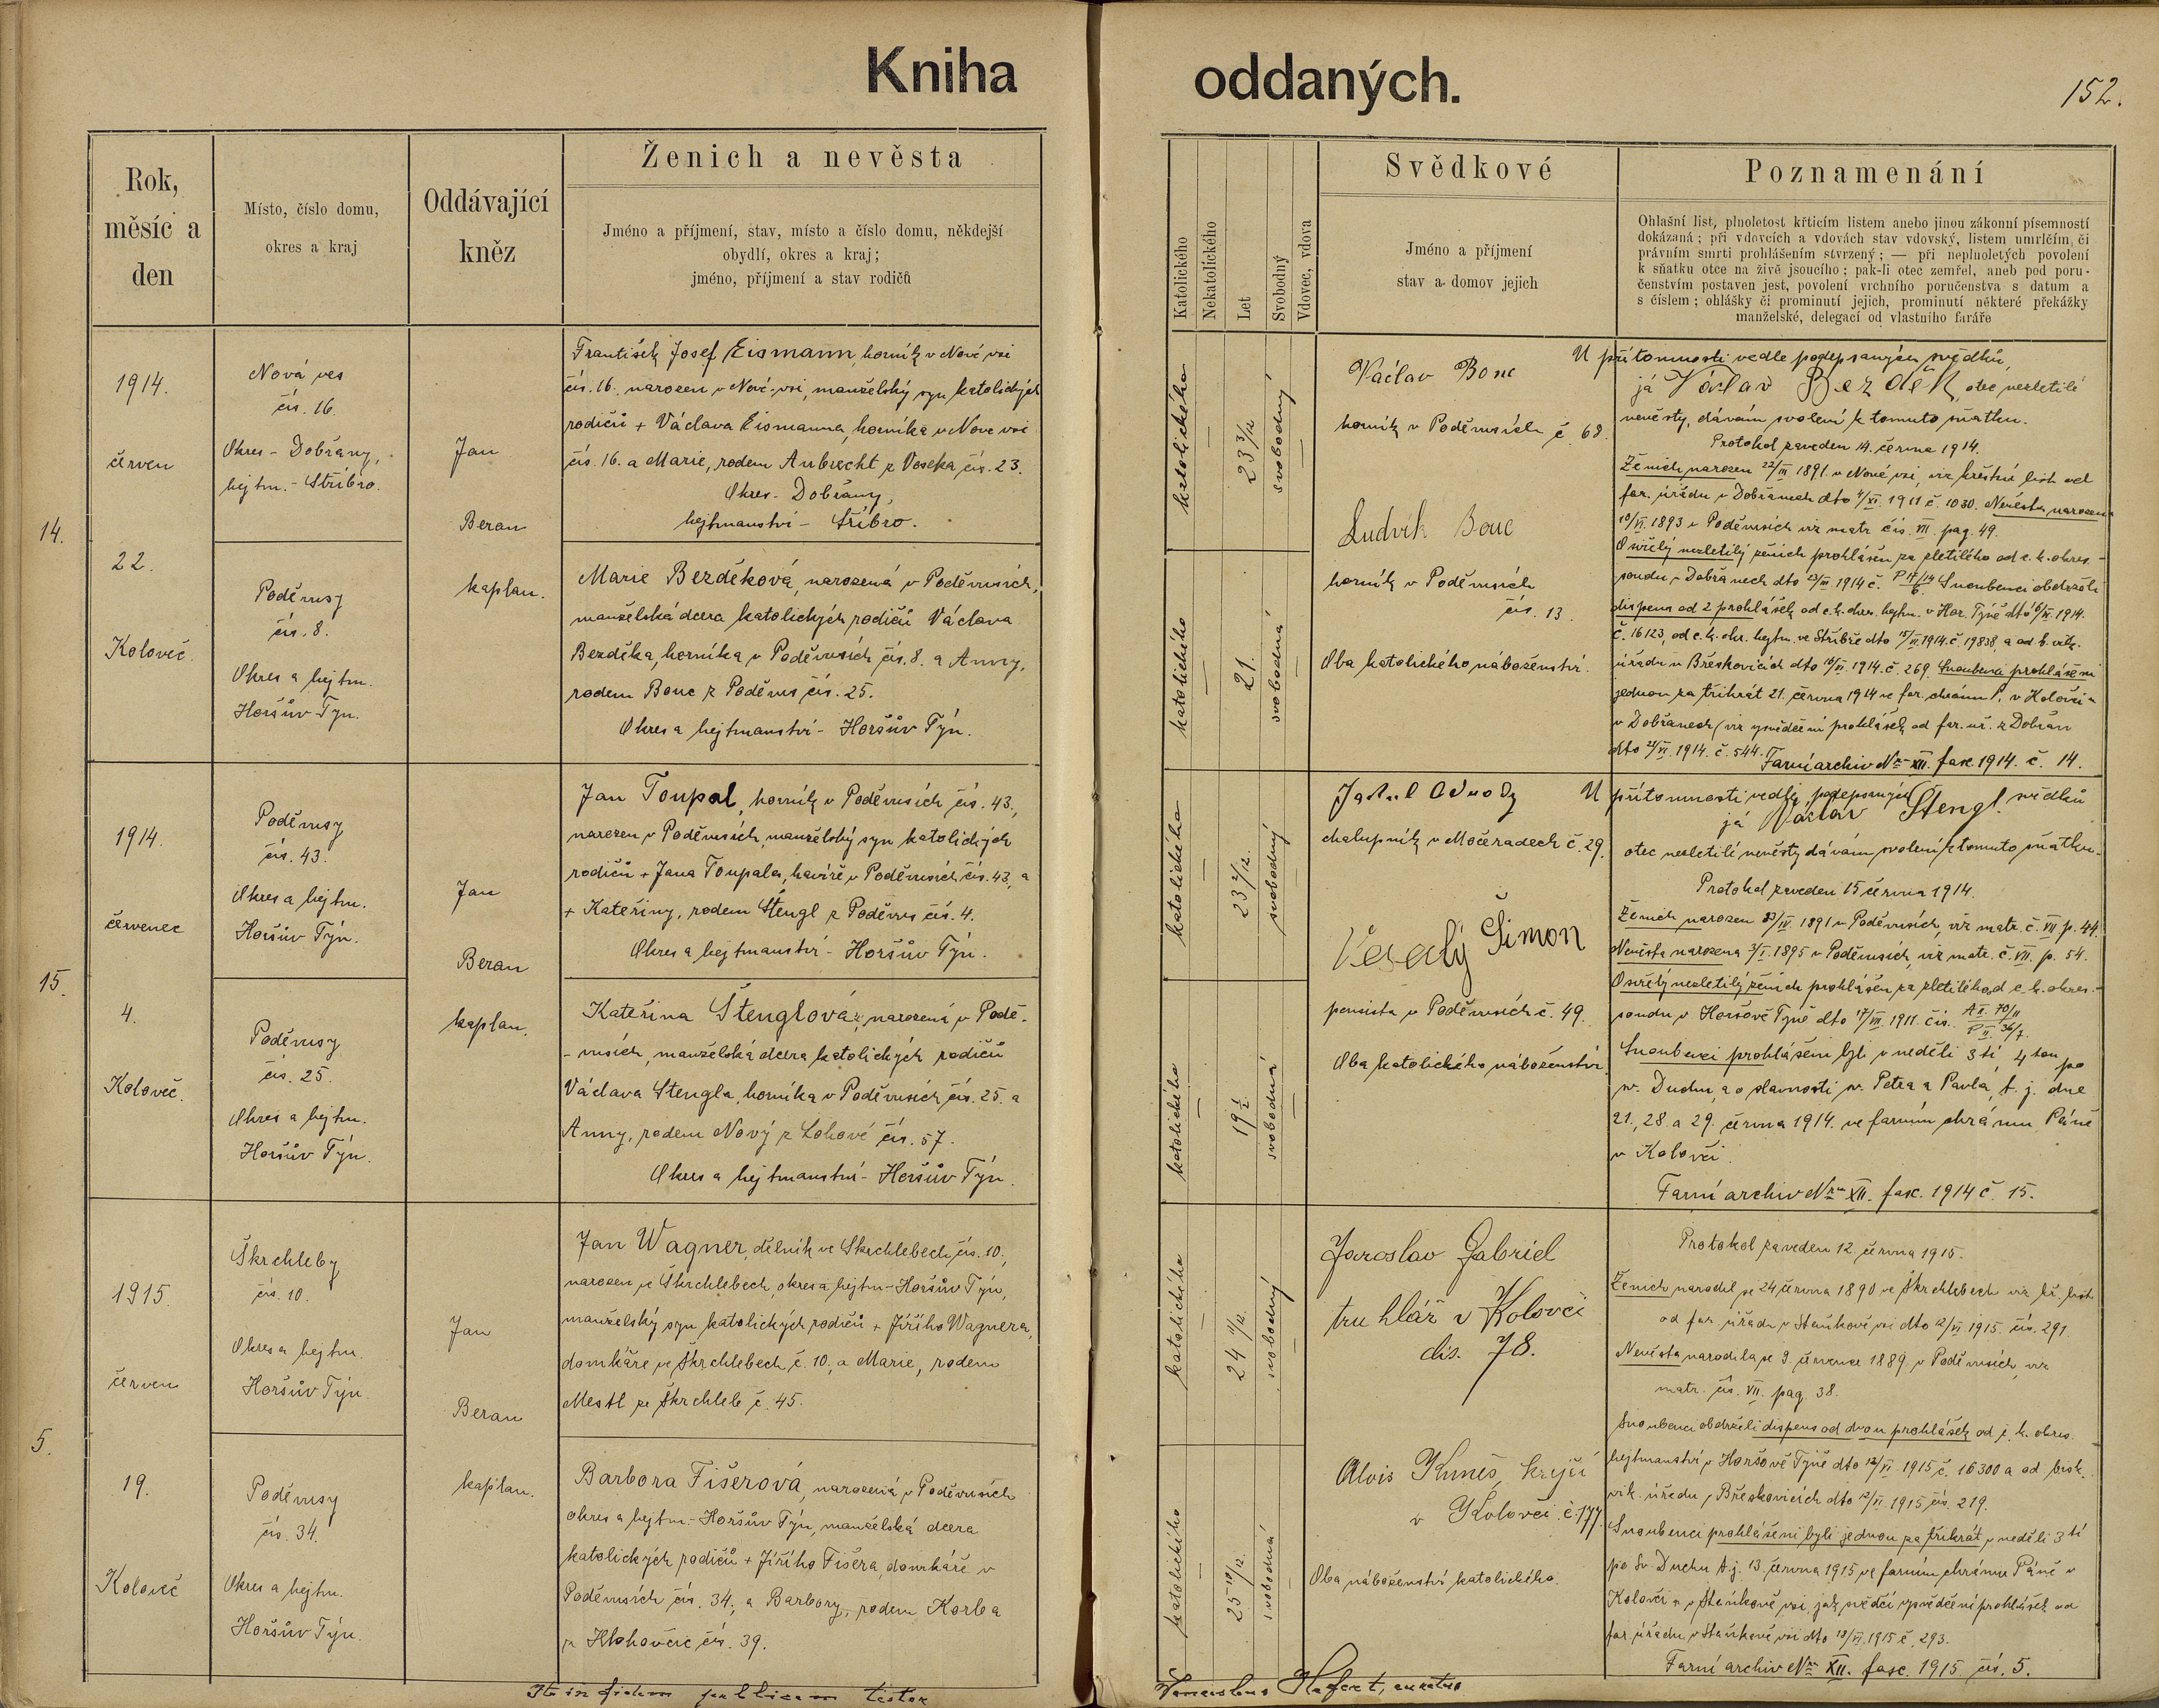 Kniha oddaných.
152.
Rok,
měsíc a
den
Místo, číslo domu,
okres a kraj
Oddávající
kněz
Ženich a nevěsta
Jméno a příjmení, stav, místo a číslo domu, někdejší
obydlí, okres a kraj;
jméno, příjmení a stav rodičů
Katolického
Nekatolického
Let
Svobodný
Vdovec, vdova
Svědkové
Jméno a příjmení
stav a domov jejich
Poznamenání
Ohlašní list, plnoletost křticím listem anebo jinou zákonní písemností
dokázaná; při vdovcích a vdovách stav vdovský, listem umrlčím, či
právním smrti prohlášením stvrzený; — při neplnoletých povolení
k sňatku otce na živě jsoucího; pak-li otec zemřel, aneb pod poru-
čenstvím postaven jest, povolení vrchního poručenstva s datum a
s číslem; ohlášky či prominutí jejich, prominutí některé překážky
manželské, delegací od vlastního faráře
14.
1914.
červen
22.
Koloveč.
Nová ves
čís. 16.
Okres - Dobřany,
hejtm. - Stříbro.
Poděvusy
čís. 8.
Okres a hejtm.
Horšův Týn.
Jan
Beran
kaplan.
František Josef Eismann, horník v Nové vsi
čís. 16. narozen v Nové vsi, manželský syn katolických
rodičů + Václava Eismanna, horníka v Nové vsi
čís. 16. a Marie, rodem Aubrecht z Voseka čís. 23.
Okres - Dobřany,
hejtmanství - Stříbro.
Marie Bezděková, narozená v Poděvusích,
manželská dcera katolických rodičů Václava
Bezděka, horníka v Poděvusích čís. 8. a Anny,
rodem Bouc z Poděvus čís. 25.
Okres a hejtmanství - Horšův Týn.
katolického
—
23 3/12
svobodný
—
katolického
—
21.
svobodná
—
Václav Bouc
horník v Poděvusích č. 68.
Ludvík Bouc
horník v Poděvusích
čís. 13.
Oba katolického náboženství.
U přítomnosti vedle podepsaných svědků,
já Václav Bezděk, otec nezletilé
nevěsty, dávám svolení k tomuto sňatku.
Protokol zaveden 14. června 1914.
Ženich narozen 22/III 1891. v Nové vsi, viz křestní list od
far. úřadu v Dobřanech dto 4/XI. 1911 č. 1030. Nevěsta narozena
10/VI. 1893 v Poděvusích viz matr. čís. VII. pag. 49.
Osiřelý nezletilý ženich prohlášen za zletilého od c. k. okres.
soudu v Dobřanech dto 23/III. 1914 č. P 17/14 6. Snoubenci obdrželi
dispens od 2 prohlášek od c. k. okres. hejtm. v Hor. Týně dto 6/VI. 1914.
č. 16123, od c. k. okr. hejtm. ve Stříbře dto 15/VI. 1914 č. 19838, a od b. vik.
úřadu v Břeskovicích dto 16/VI. 1914. č. 269. Snoubenci prohlášeni
jednou za třikrát 21. června 1914 ve far. chrámu P. v Kolovči a
v Dobřanech (viz vysvědčení prohlášek od far. úř. z Dobřan
dto 21/VI. 1914. č. 544. Farní archiv Nro XII. fasc. 1914. č. 14.
15.
1914.
červenec
4.
Koloveč.
Poděvusy
čís. 43.
Okres a hejtm.
Horšův Týn.
Poděvusy
čís. 25.
Okres a hejtm.
Horšův Týn.
Jan
Beran
kaplan.
Jan Toupal, horník v Poděvusích čís. 43.,
narozen v Poděvusích, manželský syn katolických
rodičů + Jana Toupala, havíře v Poděvusích čís. 43, a
+ Kateřiny, rodem Štengl z Poděvus čís. 4.
Okres a hejtmanství - Horšův Týn.
Kateřina Štenglová, narozená v Podě-
- vusích, manželská dcera katolických rodičů
Václava Štengla, horníka v Poděvusích čís. 25. a
Anny, rodem Nový z Lohové čís. 57.
Okres a hejtmanství - Horšův Týn.
katolického
—
23 2/12.
svobodný
—
katolického
—
svobodná
—
chalupník v Močeradech č. 29.
Veselý Šimon
pensista v Poděvusích č. 49.
Oba katolického náboženství.
U přítomnosti vedle podepsaných svědků
já Václav Štengl
otec nezletilé nevěsty dávám svolení k tomuto sňatku.
Protokol zaveden 15 června 1914.
Ženich narozen 23/IV. 1891 v Poděvusích, viz matr. č. VII p. 44.
Nevěsta narozena 3/I. 1895 v Poděvusích, viz matr. č. VII. p. 54.
Osiřelý nezletilý ženich prohlášen za zletilého od c. k. okres.
soudu v Horšově Týně dto 17/III. 1911. čís.
Snoubenci prohlášeni byli v neděli 3tí 4tou po
sv. Duchu, a o slavnosti sv. Petra a Pavla, t. j. dne
21., 28. a 29. června 1914. ve farním chrámu Páně
v Kolovči.
Farní archiv Nro XII. fasc. 1914 č. 15.
5.
1915.
červen
19.
Koloveč
Škrchleby
čís. 10.
Okres a hejtm.
Horšův Týn.
Poděvusy
čís. 34.
Okres a hejtm.
Horšův Týn.
Jan
Beran
kaplan.
Jan Wagner, dělník ve Škrchlebech čís. 10.,
narozen ve Škrchlebech, okres a hejtm - Horšův Týn,
manželský syn katolických rodičů + Jiřího Wagnera,
domkáře ve Škrchlebech č. 10, a Marie, rodem
Mestl ze Škrchleb č. 45.
Barbora Fišerová, narozená v Poděvusích
okres a hejtm. - Horšův Týn, manželská dcera
katolických rodičů + Jiřího Fišera, domkáře v
Poděvusích čís. 34., a Barbory, rodem Korba
z Hlohovčic čís. 39.
katolického
—
24 11/12.
svobodný
—
katolického
—
25
svobodná
—
Jaroslav Gabriel
truhlář v Kolovči
čis. 78.
Alois Kuneš, krejčí
v Kolovči. č. 177.
Oba náboženství katolického.
Protokol zaveden 12. června 1915.
Ženich narodil se 24 června 1890 ve Škrchlebech viz kř. list
od far. úřadu v Staňkově vsi dto 12/VI 1915. čís. 291.
Nevěsta narodila se 9. července 1889. v Poděvusích, viz
matr. čís. VII. pag. 38.
Snoubenci obdrželi dispens od dvou prohlášek od c. k. okres.
hejtmanství v Horšově Týně dto 12/VI. 1915 č. 16300 a od bisk.
vik. úřadu v Břeskovicích dto 12/VI. 1915 čís. 219.
Snoubenci prohlášeni byli jednou za třikrát v neděli 3tí
po Sv. Duchu t. j. 13. června 1915 ve farním chrámu Páně v
Kolovči a v Staňkově vsi, jak svědčí vysvědčení prohlášek od
far. úřadu v Staňkově vsi dto 13/VI. 1915 č. 293.
Farní archiv Nro XII. fasc. 1915. čís. 5.
Ita in fidem publicam testor
Venceslaus